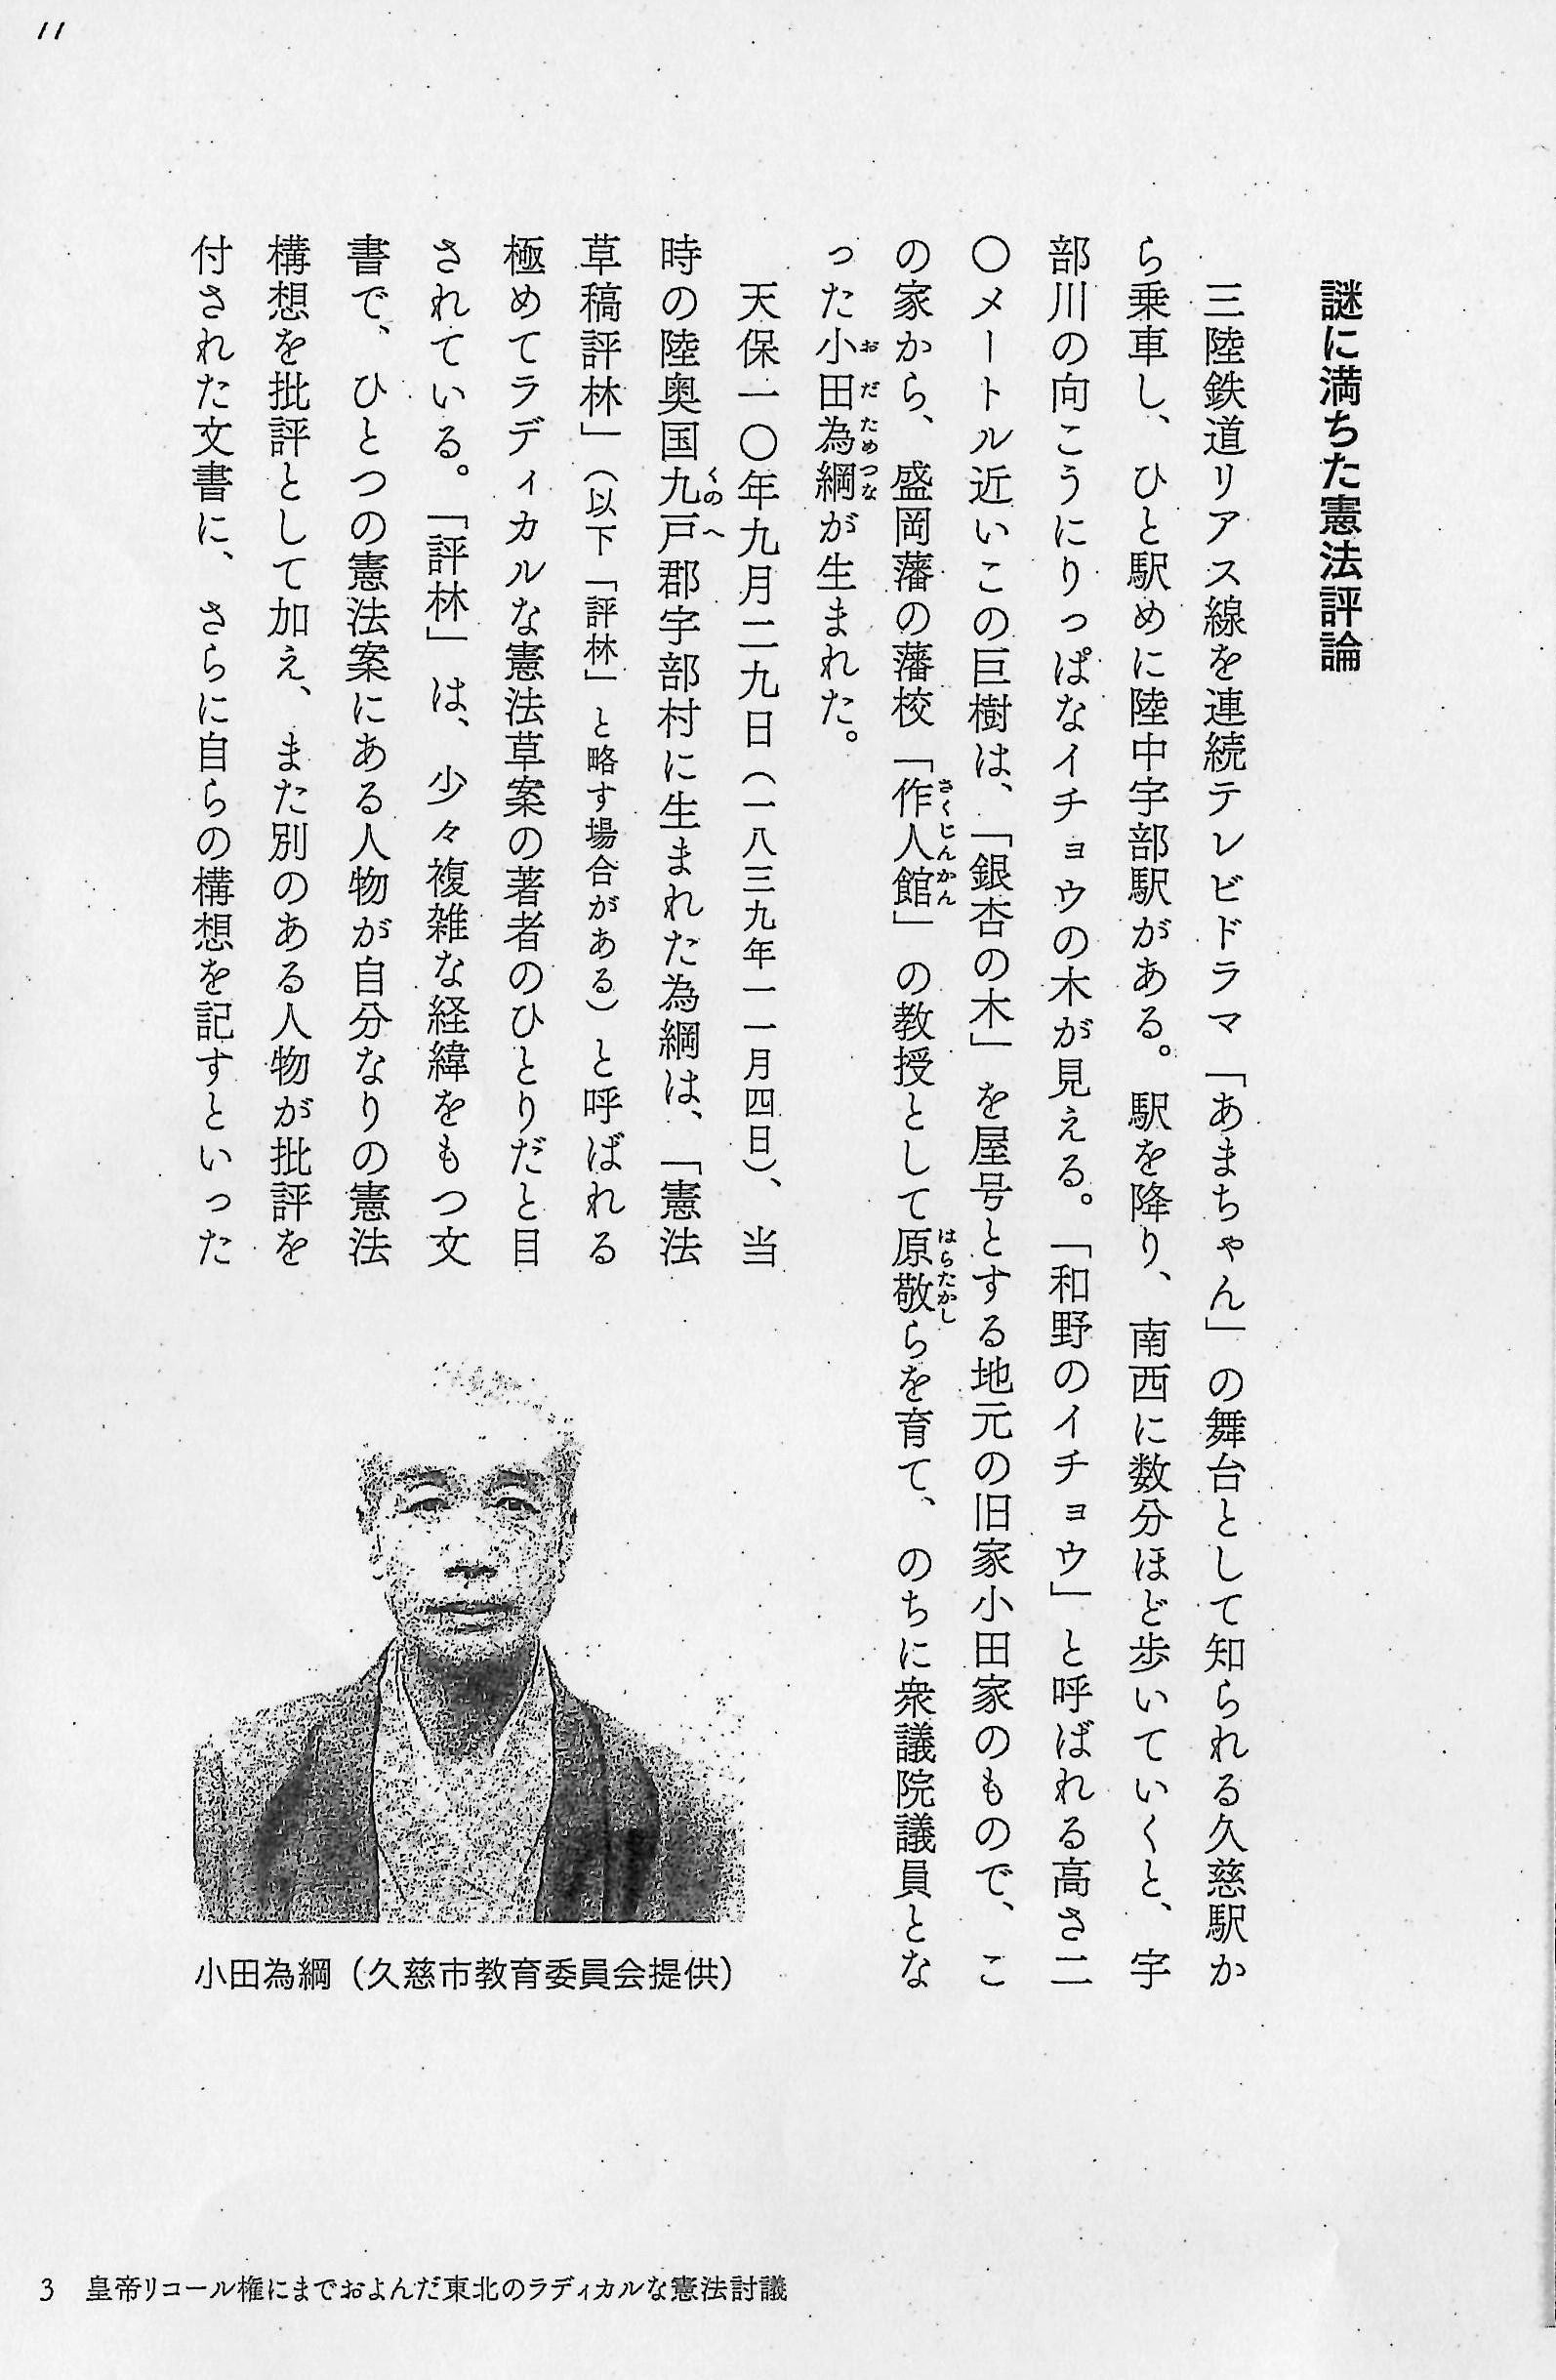 11
謎に満ちた憲法評論
三陸鉄道リアス線を連続テレビドラマ「あまちゃん」の舞台として知られる久慈駅か
ら乗車し、ひと駅めに陸中宇部駅がある。駅を降り、南西に数分ほど歩いていくと、宇
部川の向こうにりっぱなイチョウの木が見える。「和野のイチョウ」と呼ばれる高さ二
〇メートル近いこの巨樹は、「銀杏の木」を屋号とする地元の旧家小田家のもので、こ
の家から、盛岡藩の藩校「作人館」の教授として原敬らを育て、のちに衆議院議員とな
さくじんかん
はらたかし
った小田為綱が生まれた。
おだためつな
天保一〇年九月二九日（一八三九年一一月四日）、当
時の陸奥国九戸郡宇部村に生まれた為綱は、「憲法
くのへ
草稿評林」（以下「評林」と略す場合がある）と呼ばれる
極めてラディカルな憲法草案の著者のひとりだと目
されている。「評林」は、少々複雑な経緯をもつ文
書で、ひとつの憲法案にある人物が自分なりの憲法
構想を批評として加え、また別のある人物が批評を
付された文書に、さらに自らの構想を記すといった
小田為綱（久慈市教育委員会提供）
3 皇帝リコール権にまでおよんだ東北のラディカルな憲法討議